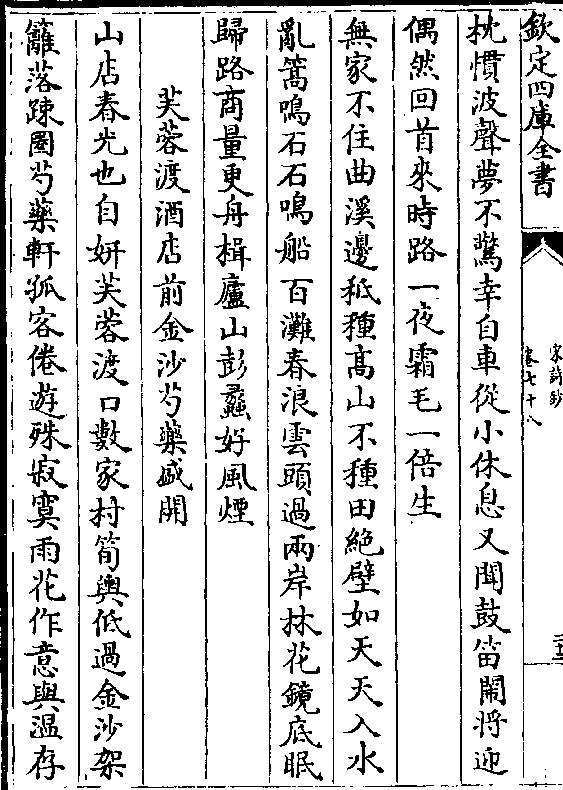 欽定四庫全書
宋詩鈔
卷七十八
枕慣波聲夢不驚幸自車從小休息又聞鼓笛鬧將迎
偶然回首來時路一夜霜毛一倍生
無家不住曲溪邊秪種高山不種田絶壁如天天入水
亂篙鳴石石鳴船百灘春浪雲頭過兩岸林花鏡底眠
歸路商量更舟楫廬山彭蠡好風煙
芙蓉渡酒店前金沙芍藥盛開
山店春光也自妍芙蓉渡口數家村筍輿低過金沙架
籬落踈圈芍藥軒孤客倦遊殊寂寞雨花作意與温存